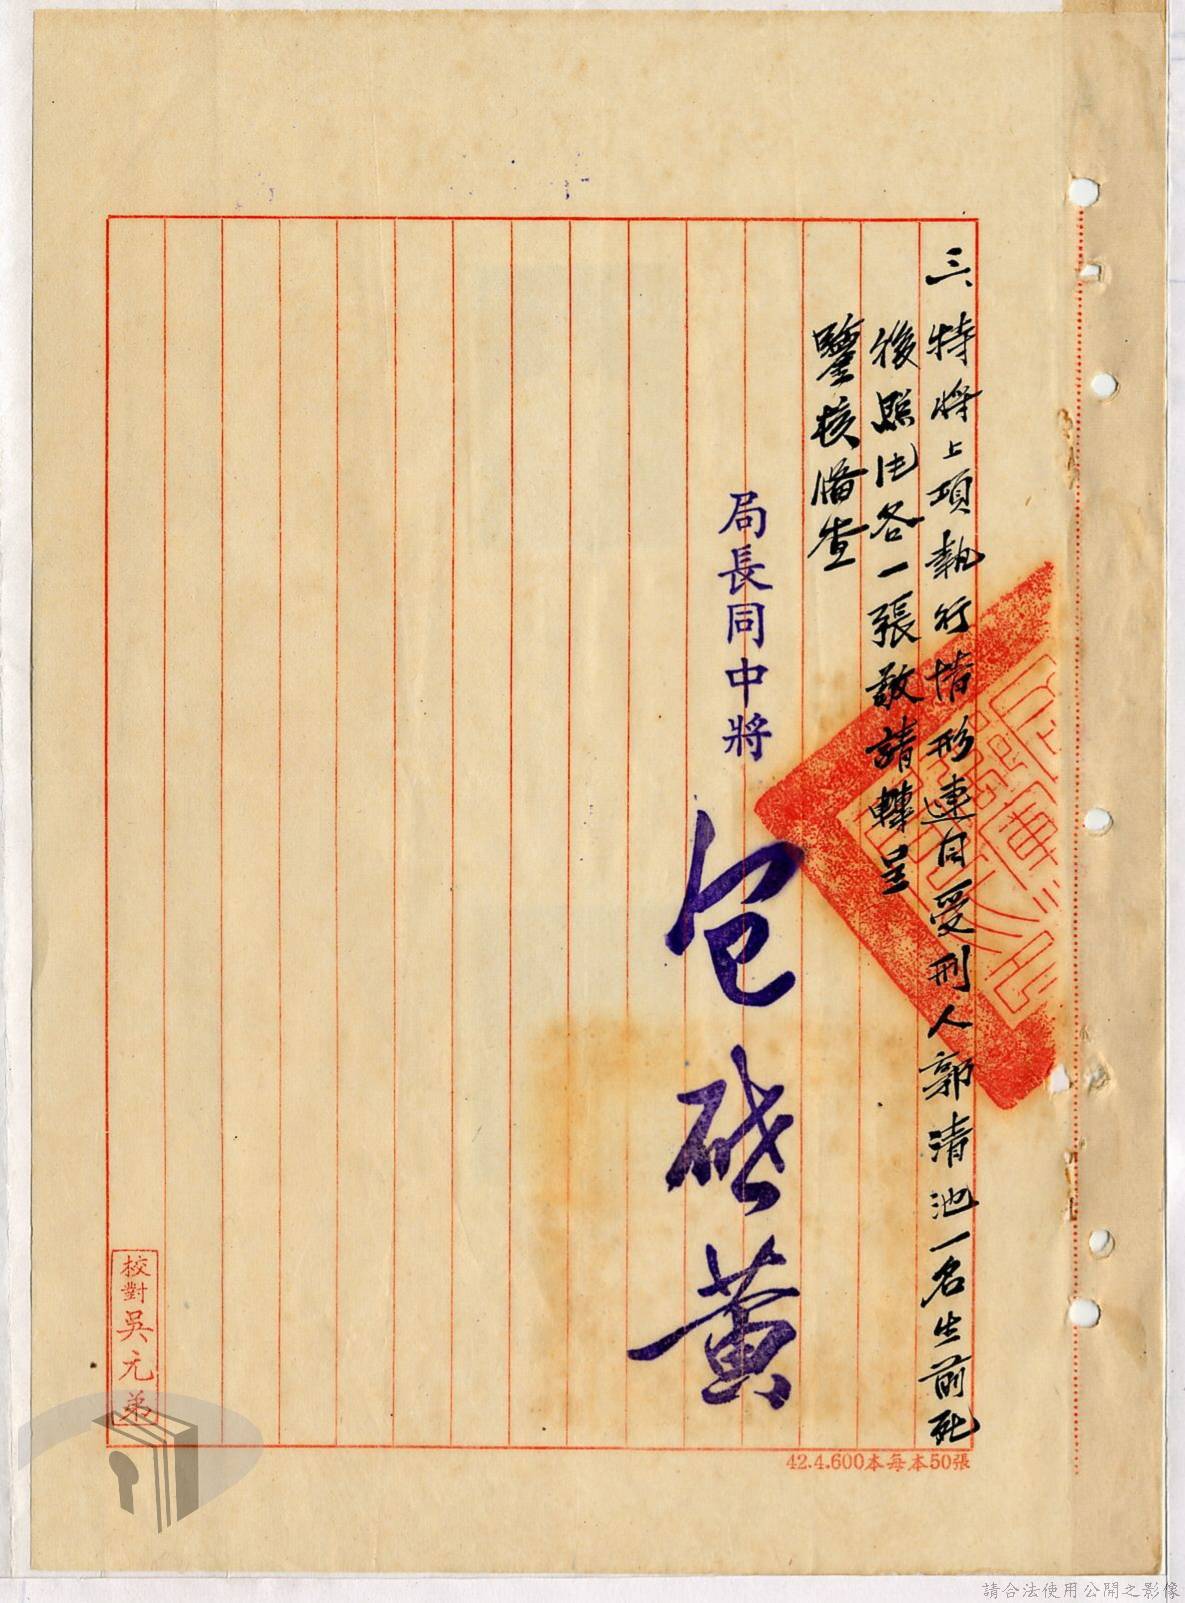 三、特將上項執行情形連同受刑人郭清池一名生前死
後照片各一張敬請轉呈
鑒核備查
局長同中將
包啓黄
校對吳元弟
42.4.600本每本50張
請合法使用公開之影像